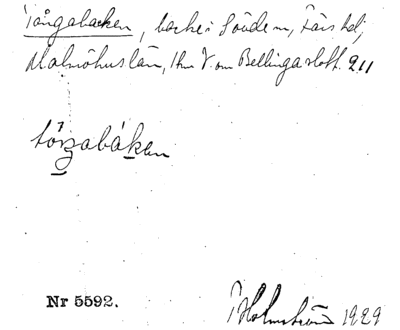 Tångabacken, backe i Sövde sn, Färs hd,
Malmöhus län, 1 km V om Bellinga slott. 211
tåŋabákən
Nr 5592.
Holmström 1929